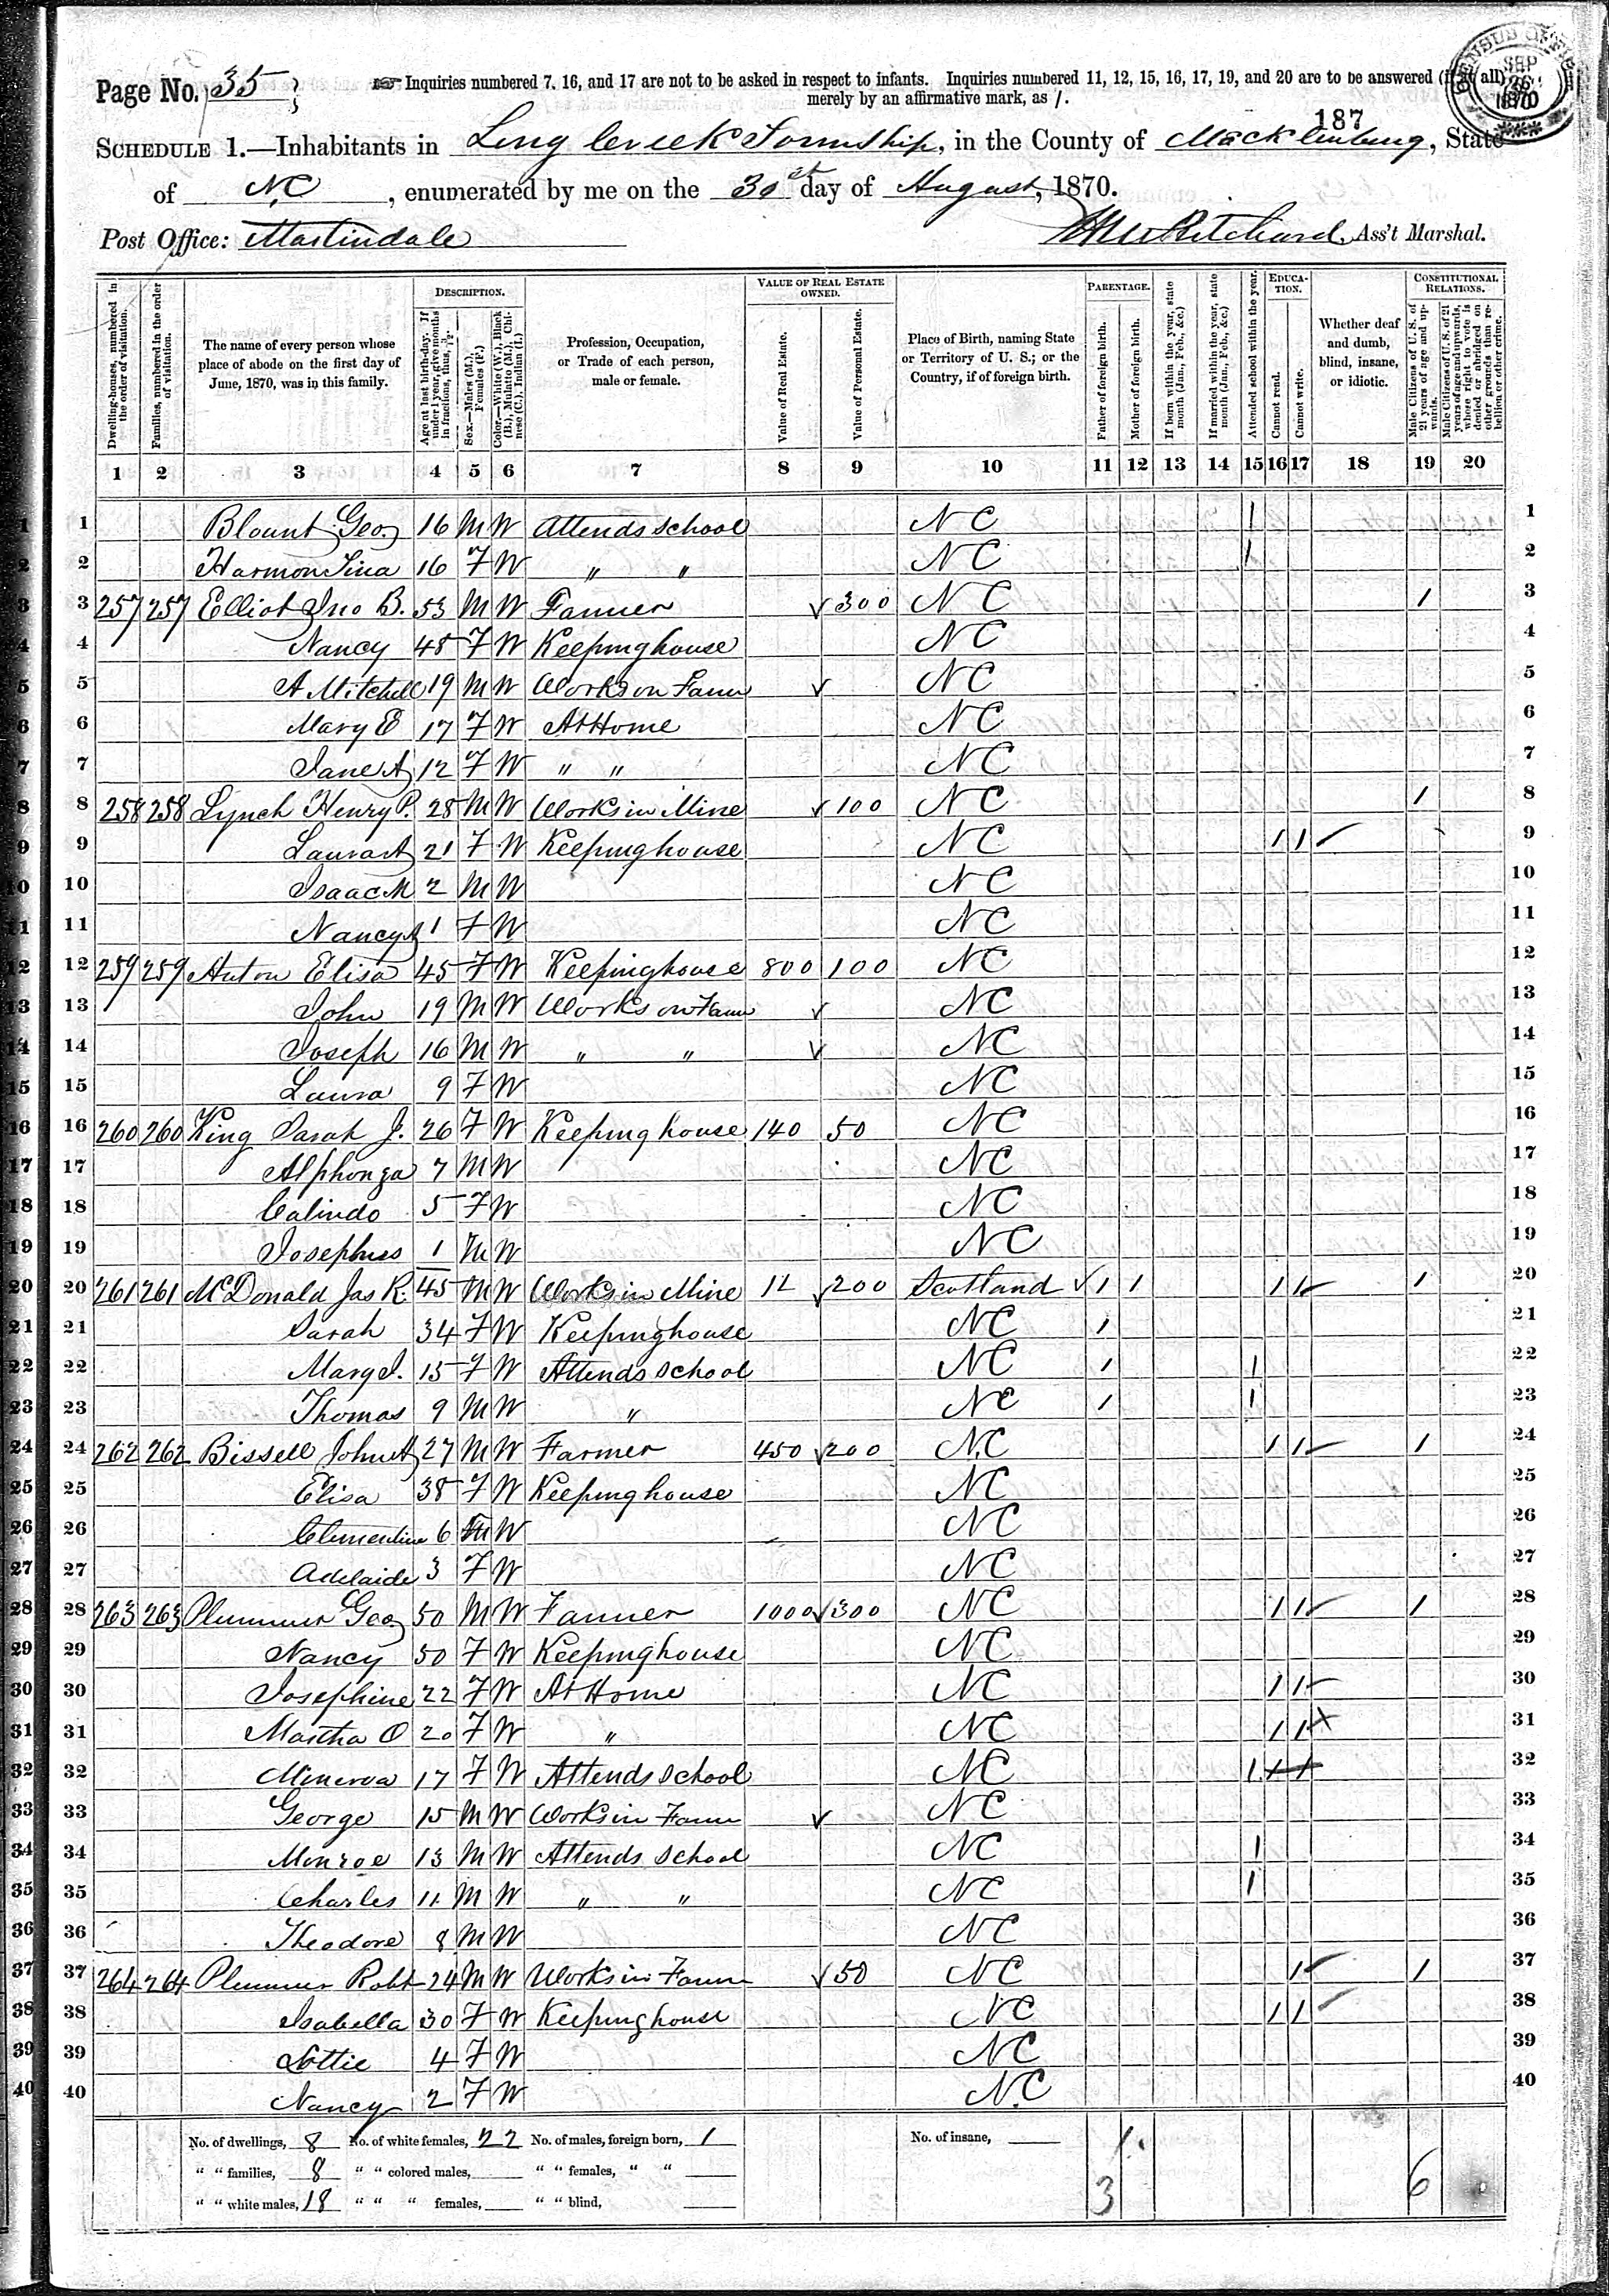 Page No. 35
Inquiries numbered 7, 16, and 17 are not to be asked in respect to infants. Inquiries numbered 11, 12, 15, 16, 17, 19, and 20 are to be answered (if at all)
merely by an affirmative mark, as /.
CENSUS OFFICE SEP 26 1870
187
SCHEDULE 1.—Inhabitants in Long Creek Township, in the County of Macklinburg, State
of NC, enumerated by me on the 30st day of August, 1870.
Post Office: Martindale Ass't Marshal.
Dwelling-houses, numbered in the order of visitation.
Families, numbered in the order of visitation.
The name of every person whose place of abode on the first day of June, 1870, was in this family.
DESCRIPTION.
Age at last birth-day. If under 1 year, give months in fractions, thus, 3/12.
Sex.—Males (M.), Females (F.)
Color.—White (W.), Black (B.), Mulatto (M.), Chinese (C.), Indian (I.)
Profession, Occupation, or Trade of each person, male or female.
VALUE OF REAL ESTATE OWNED.
Value of Real Estate.
Value of Personal Estate.
Place of Birth, naming State or Territory of U. S.; or the Country, if of foreign birth.
PARENTAGE.
Father of foreign birth.
Mother of foreign birth.
If born within the year, state month (Jan., Feb., &c.)
If married within the year, state month (Jan., Feb., &c.)
Attended school within the year.
EDUCATION.
Cannot read.
Cannot write.
Whether deaf and dumb, blind, insane, or idiotic.
CONSTITUTIONAL RELATIONS.
Male Citizens of U. S. of 21 years of age and upwards.
Male Citizens of U. S. of 21 years of age and upwards, whose right to vote is denied or abridged on other grounds than rebellion or other crime.
1 2 3 4 5 6 7 8 9 10 11 12 13 14 15 16 17 18 19 20
1 Blount Geo. 16 M W Attends school N C 1 1
2 Harmon Lina 16 F W " " N C 1 2
3 257 257 Elliot Jno B. 53 M W Farmer 300 N C 1 3
4 Nancy 48 F W Keeping house N C 4
5 A Mitchell 19 M W Works on Farm N C 5
6 Mary E 17 F W At Home N C 6
7 Jane A 12 F W " " N C 7
8 258 258 Lynch Henry P. 28 M W Works in Mine 100 N C 1 8
9 Laura A 21 F W Keeping house N C 1 1 9
10 Isaac M 2 M W N C 10
11 Nancy A 1 F W N C 11
12 259 259 Auton Elisa 45 F W Keeping house 800 100 N C 12
13 John 19 M W Works on Farm N C 13
14 Joseph 16 M W " " N C 14
15 Laura 9 F W N C 15
16 260 260 King Sarah J. 26 F W Keeping house 140 50 N C 16
17 Alphonza 7 M W N C 17
18 Calindo 5 F W N C 18
19 Josephus 1 M W N C 19
20 261 261 McDonald Jas R. 45 M W Works in Mine 12 200 Scotland 1 1 1 1 1 20
21 Sarah 34 F W Keeping house N C 1 21
22 Mary J. 15 F W Attends school N C 1 1 22
23 Thomas 9 M W " N C 1 1 23
24 262 262 Bissell John A 27 M W Farmer 450 200 N C 1 1 1 24
25 Elisa 38 F W Keeping house N C 25
26 Clementine 6 W N C 26
27 Adelaide 3 F W N C 27
28 263 263 Plummer Geo. 50 M W Farmer 1000 300 N C 1 1 1 28
29 Nancy 50 F W Keeping house N C 29
30 Josephine 22 F W At Home N C 1 1 30
31 Martha O 20 F W " N C 1 1 31
32 Minerva 17 F W Attends school N C 1 1 1 32
33 George 15 M W Works in Farm N C 33
34 Monroe 13 M W Attends school N C 1 34
35 Charles 11 M W " " N C 1 35
36 Theodore 8 M W N C 36
37 264 264 Plummer Robt 24 M W Works in Farm 50 N C 1 1 37
38 Isabella 30 F W Keeping house N C 1 1 38
39 Lottie 4 F W N C 39
40 Nancy 2 F W N C 40
No. of dwellings, 8 No. of white females, 22 No. of males, foreign born, 1 No. of insane,
" " families, 8 " " colored males, " " females, " "
" " white males, 18 " " " females, " " blind, 3 1 6